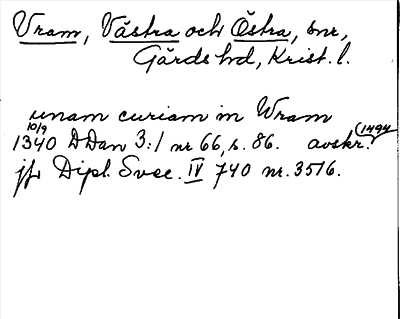 Vram, Västra och Östra, snr,
Gärds hd, Krist. l.
unam curiam in Wram
10/9 1340 DDan 3:1 nr 66, s. 86. avskr. (1494
jfr Dipl. Svec. IV 740 nr. 3516.